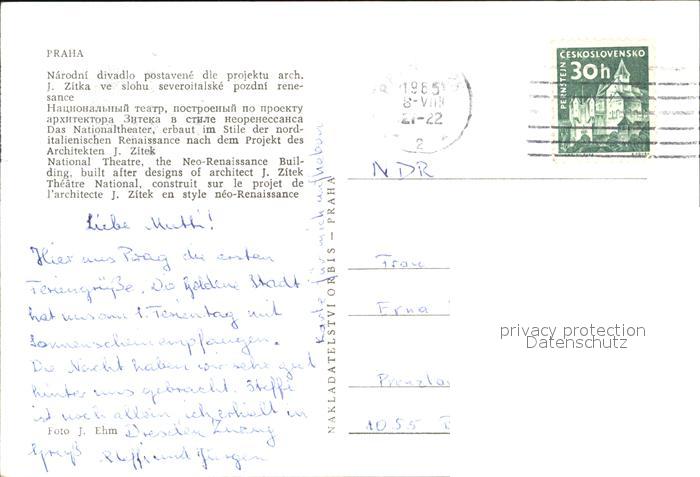 PRAHA
Národní divadlo postavené dle projektu arch.
J. Zítka ve slohu severoitalské pozdní rene-
sance
Национальный театр, построеный по проекту
архитектора Зитека в стиле неоренессанса
Das Nationaltheater, erbaut im Stile der nord-
italienischen Renaissance nach dem Projekt des
Architekten J. Zítek
National Theatre, the Neo-Renaissance Buil-
ding, built after designs of architect J. Zítek
Théâtre National, construit sur le projet de
l'architecte J. Zítek en style néo-Renaissance
Liebe Mutti!
Hier aus Prag die ersten
Feriengrüße. Die goldene Stadt
hat uns am 1. Ferientag mit
Sonnenschein empfangen.
Die Nacht haben wir sehr gut
hinter uns gebracht. Steffi
ist noch allein, ich erhielt in
Foto J. Ehm
Dresden
Steffi und Jürgen
Karte für mich aufheben
NAKLADATELSTVÍ ORBIS – PRAHA
8-VIII
21-22
2
ČESKOSLOVENSKO
30h
PERNŠTEJN
NDR
Frau
Erna
Prenzlau
1055 B
privacy protection
Datenschutz